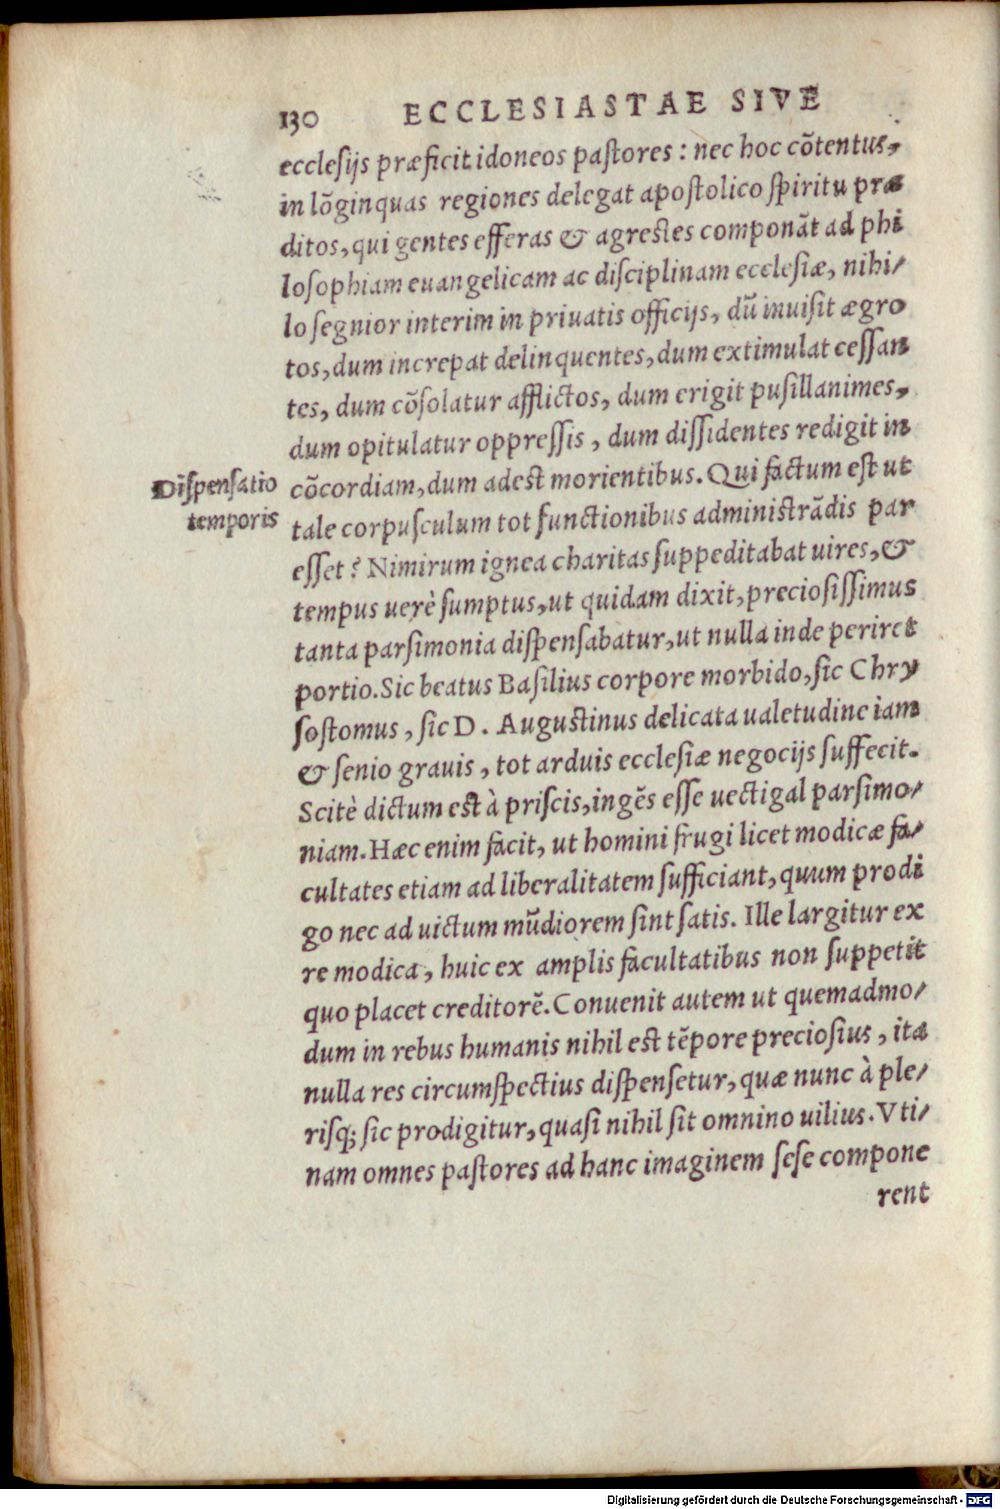 130 ECCLESIASTAE SIVE
ecclesijs præficit idoneos pastores : nec hoc cõtentus,
in lõginquas regiones delegat apostolico spiritu præ
ditos, qui gentes efferas & agrestes componãt ad phi
losophiam euangelicam ac disciplinam ecclesiæ, nihi/
lo segnior interim in priuatis officijs, dũ inuisit ægro
tos, dum increpat delinquentes, dum extimulat cessan
tes, dum cõsolatur afflictos, dum erigit pusillanimes,
dum opitulatur oppressis, dum dissidentes redigit in
Dispensatio
temporis
cõcordiam, dum adest morientibus. Qui factum est ut
tale corpusculum tot functionibus administrãdis par
esset? Nimirum ignea charitas suppeditabat uires, &
tempus uerè sumptus, ut quidam dixit, preciosissimus
tanta parsimonia dispensabatur, ut nulla inde periret
portio. Sic beatus Basilius corpore morbido, sic Chry
sostomus, sic D. Augustinus delicata ualetudine iam
& senio grauis, tot arduis ecclesiæ negocijs suffecit.
Scitè dictum est à priscis, ingẽs esse uectigal parsimo/
niam. Hæc enim facit, ut homini frugi licet modicæ fa/
cultates etiam ad liberalitatem sufficiant, quum prodi
go nec ad uictum mũdiorem sint satis. Ille largitur ex
re modica, huic ex amplis facultatibus non suppetit
quo placet creditorẽ. Conuenit autem ut quemadmo/
dum in rebus humanis nihil est tẽpore preciosius, ita
nulla res circumspectius dispensetur, quæ nunc à ple/
risq; sic prodigitur, quasi nihil sit omnino uilius. Vti/
nam omnes pastores ad hanc imaginem sese compone
rent
Digitalisierung gefördert durch die Deutsche Forschungsgemeinschaft - DFG